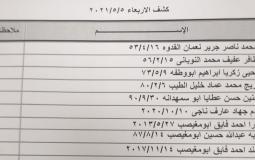 كشف الاربعاء ٢٠٢١/٥/٥
الإســـــم
ملاحظا
حمد ناصر جرير نعمان القدوه ٥٣/٤/١٦
ظافر عفيف محمد النوباني ٥٦/٢/١٥
حيى زكريا ابراهيم ابووطفه ٧٣/٥/٩
ريج محمد عماد خليل الطيب ٨٠/٢/٦
نين حسن عطايا ابو سمهدانه ٩٠/٩/٣٠
م جهاد عارف ناجي ٢٠٢٠/١٠/١٠
ا احمد فايق ابومغيصب ٢٠١٣/٥/٢٧
يه عبدالله حسين ابومغيصب ٨٧/٨/١٤
ند احمد فايق ابومغيصب ٢٠١٧/١١/١٤